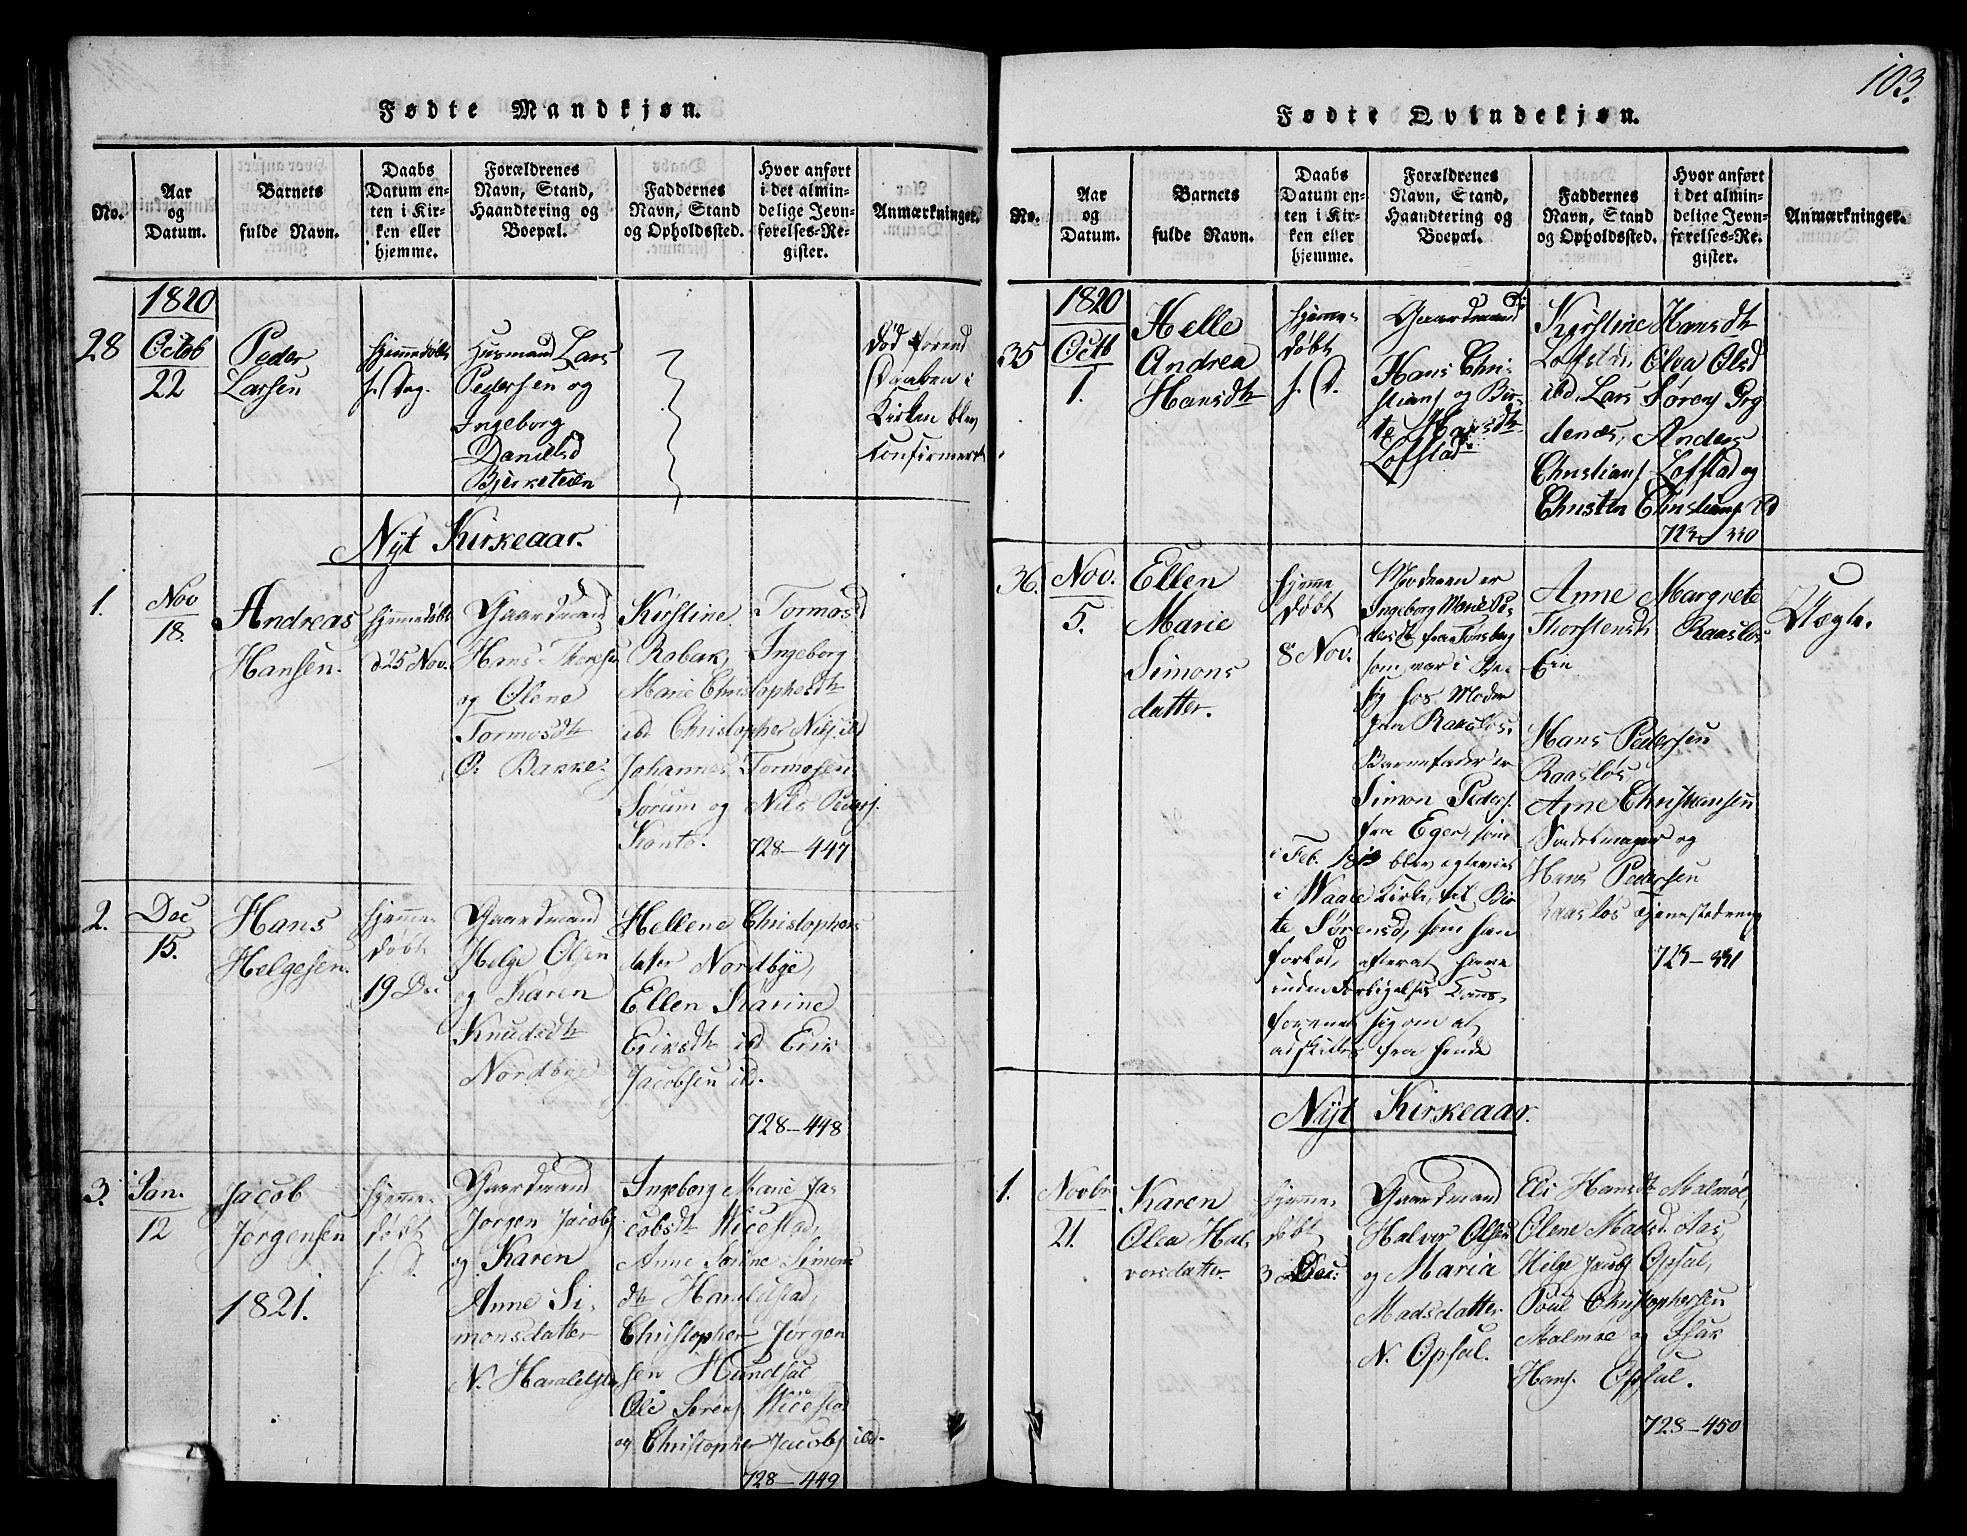 103.
Fødte Mandkjøn.
No.
Aar
og
Datum.
Barnets
fulde Navn.
Daabs
Datum en-
ten i Kir-
ken eller
hjemme.
Forældrenes
Navn, Stand,
Haandtering og
Boepæl.
Faddernes
Navn, Stand
og Opholdssted.
Hvor anført
i det almin-
delige Jevn-
førelses-Re-
gister.
Anmærkninger.
28
1820
Octob
22
Peder
Larsen
hjemmedøbt
s. Dag.
Husmand Lars
Pedersen og
Ingeborg
Danielsd
Bjerketeen
Død forend
Daaben i
Kirken blev
Confirmert
Nyt Kirkeaar.
1.
Nov
18.
Andreas
Hansen.
hjemmedøbt
d 25 Nov.
Gaardmand
Hans Thoresen
og Olene
Tormosdtr
Ø. Bakke.
Kirstine Tormosd
Robak, Ingeborg
Marie Christophersdtr
ibd Christopher Nils. ibd
Johannes Tormosen
Sørum og Nils Peders.
Konto.
728-447
2.
Dec
15.
Hans
Helgesen.
hjemme-
døbt
19 Dec
Gaardmand
Helge Olsen
og Karen
Knudsdtr
Nordbye
Hellene Christophers
datter Nordbye,
Ellen Karine
Eriksdtr ibd Erik
Jacobsen ibd.
728-448
3.
Jan.
12
Jacob
Jørgensen
1821.
hjemme-
døbt
s. D.
Gaardmand
Jørgen Jacobs
og Karen
Anne Si-
monsdatter
N. Haraldst
Ingeborg Marie Ja-
cobsdtr Wicestad,
Anne Sørine Simons
dtr Haraldstad,
Christopher Jørgen
sen Hundsal
Ole Sørens. Wicestad
og Christopher Jacobs. ibd.
728-449
Fødte Qvindekjøn.
No.
Aar
og
Datum.
Barnets
fulde Navn.
Daabs
Datum en-
ten i Kir-
ken eller
hjemme.
Forældrenes
Navn, Stand,
Haandtering og
Boepæl.
Faddernes
Navn, Stand
og Opholdssted.
Hvor anført
i det almin-
delige Jevn-
førelses-Re-
gister.
Anmærkninger.
35
1820
Octb
1.
Helle
Andrea
Hansdtr
hjemme-
døbt
s. D.
Gaardmand
Hans Chri-
stians og Bir-
te Hansdtr
Lofstad.
Kirstine Hansdtr
Lofstd. Olea Olsd
ibd Lars Sørens
Anders
Christians. Lofstad og
Christen Christians. ibd
36.
Nov.
5.
Ellen
Marie
Simons
datter.
hjemme
døbt
8 Nov.
Moderen er
Ingeborg Marie Pe-
dersdtr fra Tonsberg
som var i Be-
søg hos Moder
fra Raasløs.
Barnefader er
Simon Peders.
fra Eger, som
i Feb. blev egteviet
i Waale Kirke, til Bir-
te Sørensd, som han
forlod, efterat have
uden
sig om at
adskilles fra hende
Anne Margrete
Thorstensd Raasløs
Hans Pedersen
Raasløs
Arne Christiansen
og
Hans Pedersen
Raasløs tjenestedreng
Uægte.
Nyt Kirkeaar.
1.
Novbr
21.
Karen
Olea Hal-
vorsdatter.
hjemme-
døbt
3 Dec.
Gaardmand
Halvor Olsen
og Maria
Madsdatter
N. Opsal.
Eli Hansdtr Malmøe,
Olene Madsd. Aas,
Helge Jacobs Opsal,
Poul Christophersen
Malmøe og Isak
Hans. Opsal.
728-450